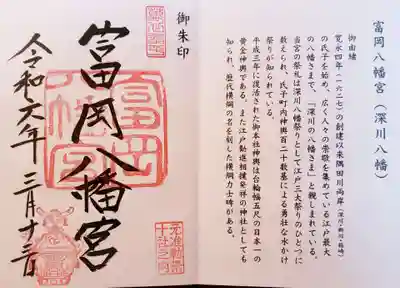 富岡八幡宮(深川八幡)
御由緒
寛永四年(一六二七)の創建以来隅田川両岸(深川・新川・箱崎)
の氏子を始め、広く人々の崇敬を集めている江戸最大
の八幡さまで、「深川の八幡さま」と親しまれている。
当宮の祭礼は深川八幡祭りとして江戸三大祭りのひとつに
数えられ、氏子町内神輿百二十数基による勇壮な水かけ
祭りが知られている。
平成三年に復活された御本社神輿は台輪幅五尺の日本一の
黄金神輿である。また江戸勧進相撲発祥の神社としても
知られ、歴代横綱の名を刻した横綱力士碑がある。
御朱印
富岡八幡宮
富岡八幡宮
令和六年 三月十三日